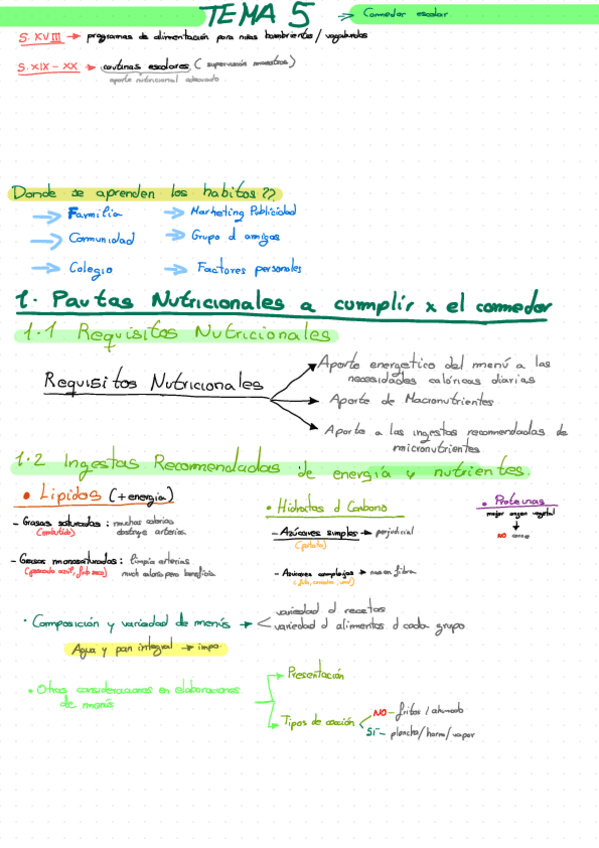 TEMA 5 → Comedor escolar
S. XVIII → programas de alimentación para niños hambrientos / vagabundos
S. XIX - XX → cantinas escolares (supervisión maestros)
aporte nutricional adecuado
Donde se aprenden los habitos??
→ Familia → Marketing Publicidad
→ Comunidad → Grupo d amigos
→ Colegio → Factores personales
1. Pautas Nutricionales a cumplir x el comedor
1.1 Requisitos Nutricionales
Requisitos Nutricionales
Aporte energetico del menú a las
necesidades calóricas diarias
Aporte de Macronutrientes
Aporte a las ingestas recomendadas de
micronutrientes
1.2 Ingestas Recomendadas de energía y nutrientes.
• Lipidos (+ energía)
- Grasas saturadas: muchas calorias
(embutido) obstruye arterias
- Grasas monosaturadas: limpia arterias
(pescado azul, fruto seco) much caloria pero beneficia
• Hidratos d Carbono
- Azúcares simples → perjudicial
- Azúcares complejos →
• Proteinas
mejor origen vegetal
↓
NO
• Composición y variedad de menús →
variedad d recetas
variedad d alimentos d cada grupo
Agua y pan integral → impo.
• Otras consideraciones en elaboraciones
de menús
Presentación
Tipos de cocción
NO - fritos / ahumado
SI - plancha/horno/vapor